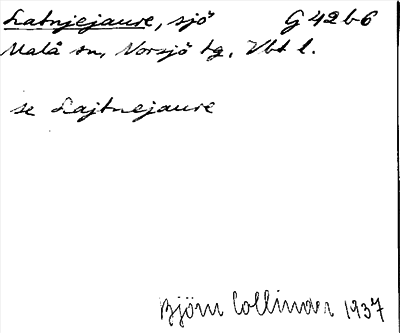 Latnjejaure, sjö G 42 b 6
Malå sn, Norsjö tg, Vbt l.
se Lajtnejaure
Björn Collinder 1937